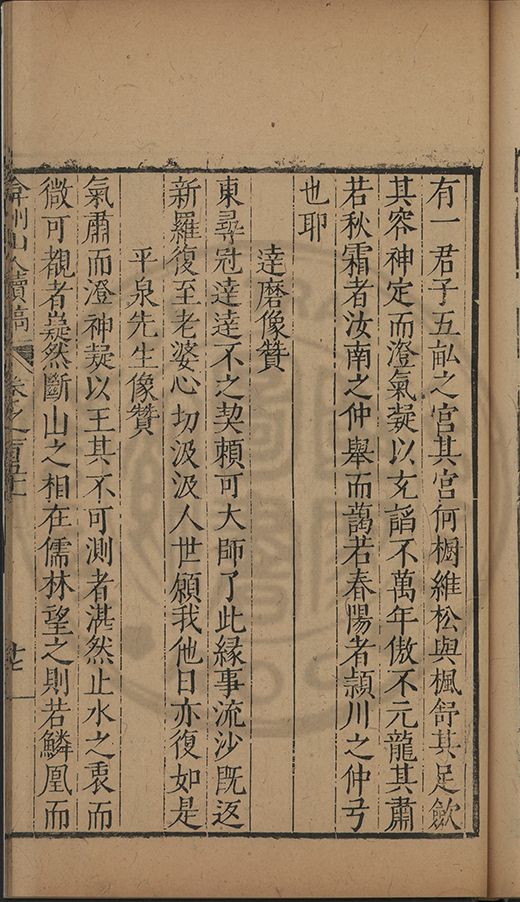 有一君子五畝之宮其宮何樹維松與楓舒其足歛
其容神定而澄氣凝以充謟不萬年傲不元龍其肅
若秋霜者汝南之仲舉而藹若春陽者潁川之仲弓
也耶
達磨像贊
東尋冠達達不之契頼可大師了此緣事流沙既返
新羅復至老婆心切汲汲人世願我他日亦復如是
平泉先生像贊
氣肅而澄神凝以王其不可測者湛然止水之衷而
微可覩者嶷然斷山之相在儒林望之則若鱗凰而
弇州山人續稿
卷之百五十
廿七